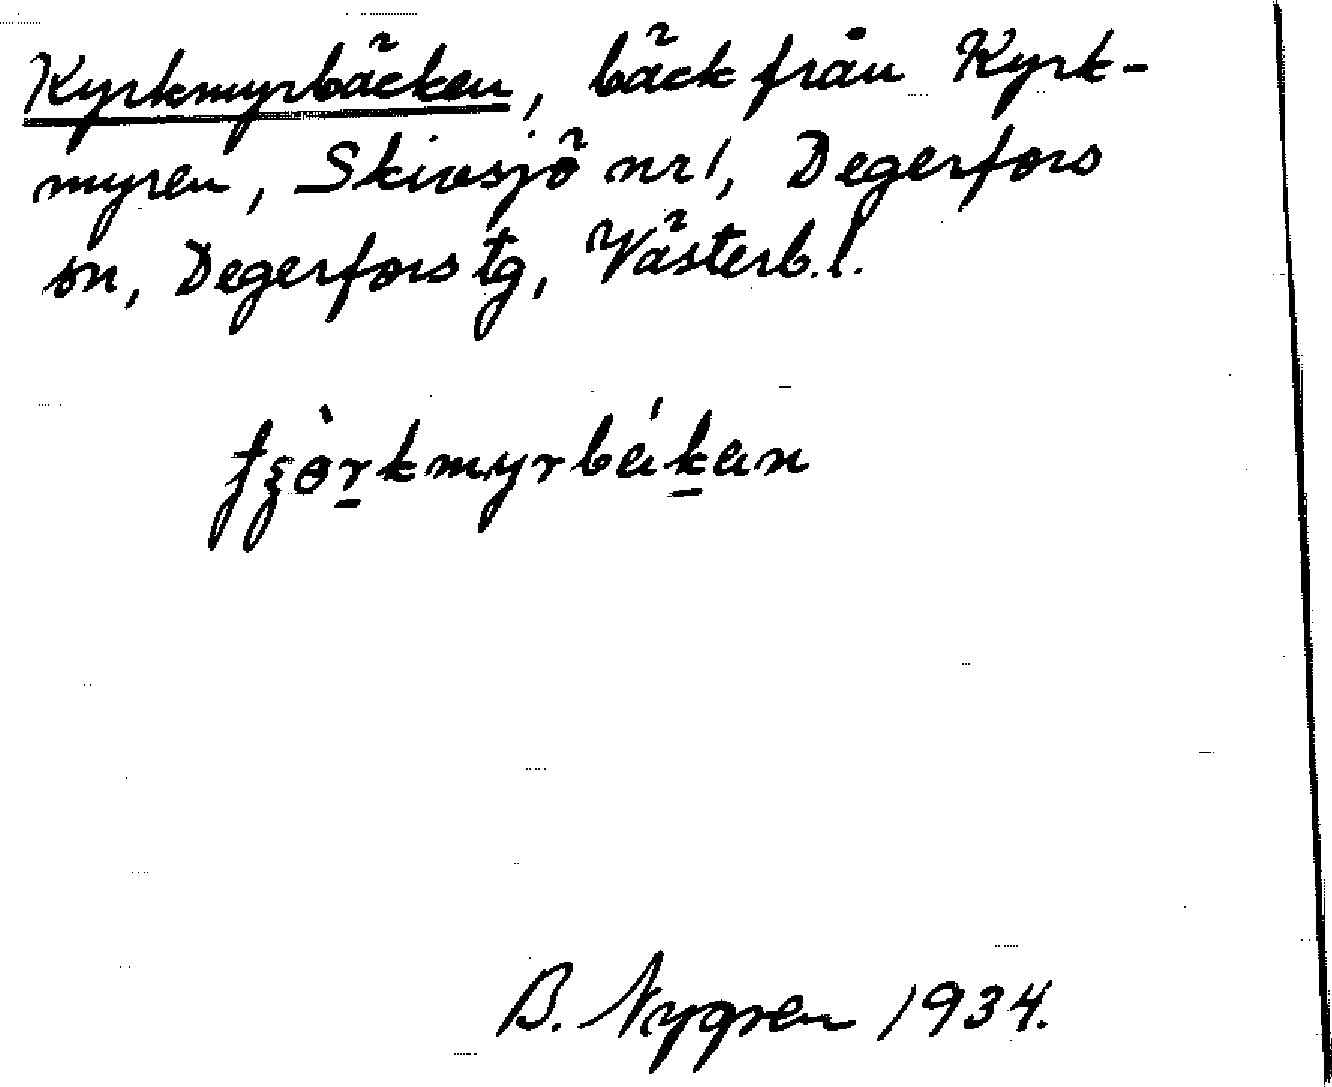 Kyrkmyrbäcken, bäck från Kyrk-
myren, Skivsjö nr 1, Degerfors
sn, Degerfors tg, Västerb. l.
B. Nygren 1934.